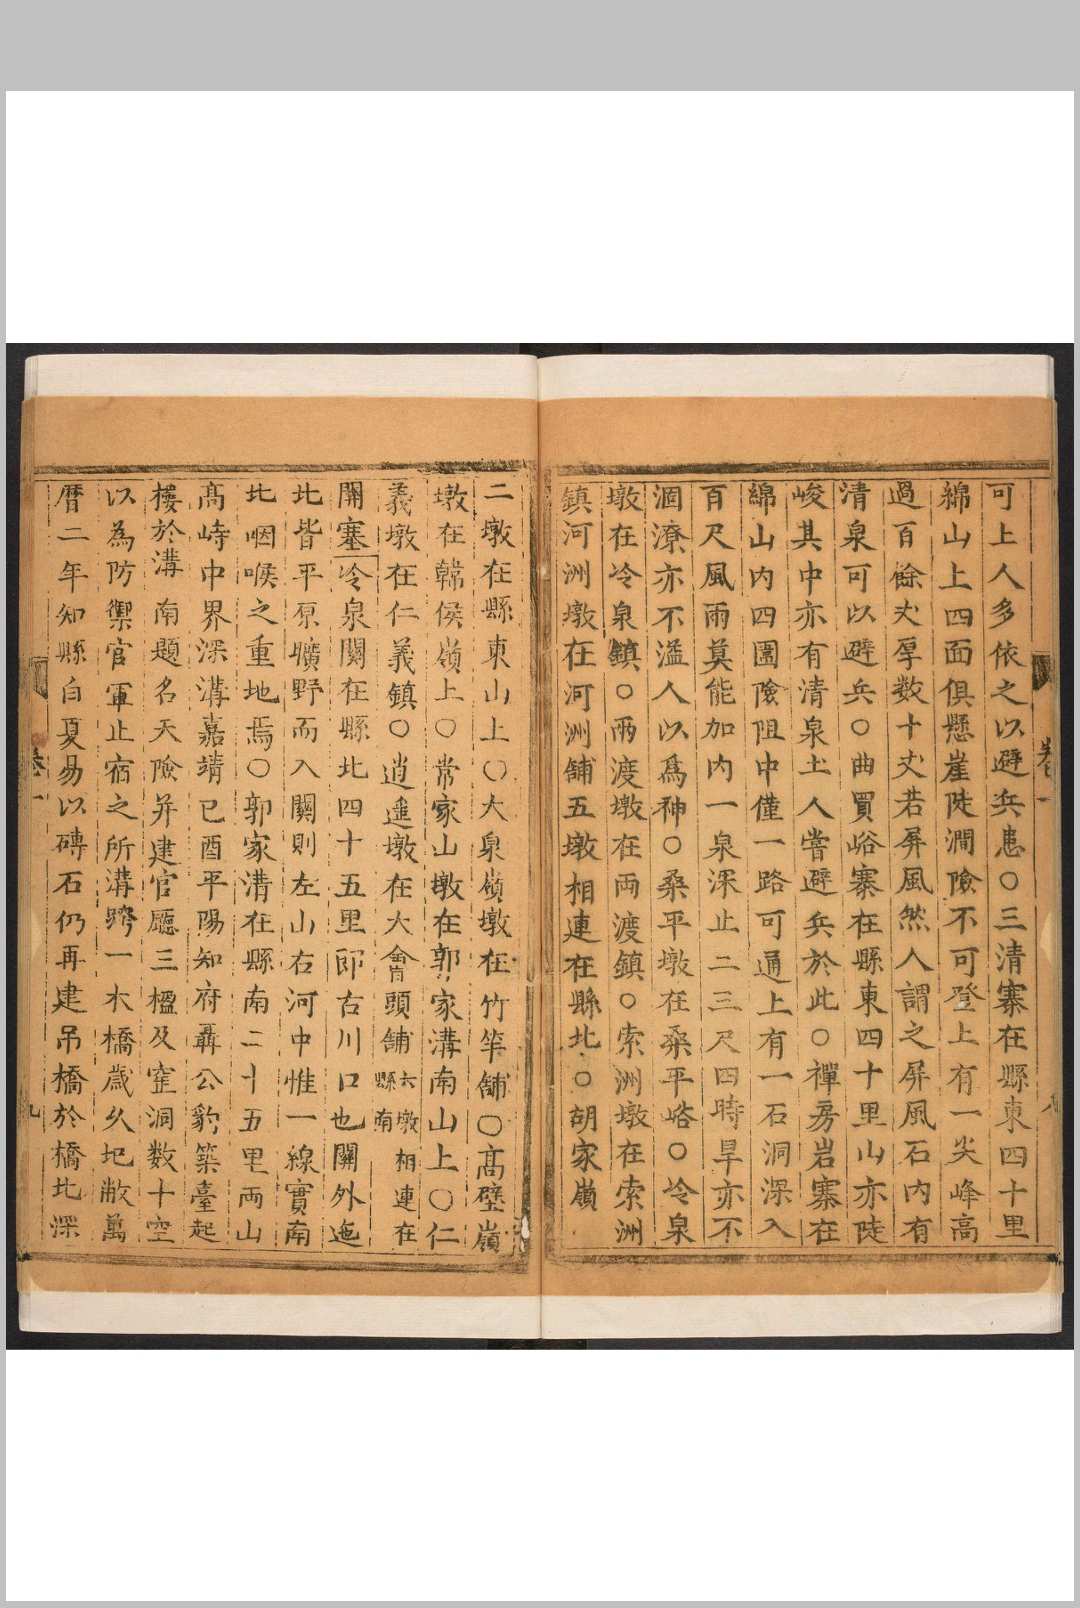 可上人多依之以避兵患○三清寨在縣東四十里
綿山上四面俱懸崖陡澗險不可登上有一尖峰高
過百餘丈厚数十丈若屏風然人謂之屏風石内有
清泉可以避兵○曲買峪寨在縣東四十里山亦陡
峻其中亦有清泉土人嘗避兵於此○禪房岩寨在
綿山内四圍險阻中僅一路可通上有一石洞深入
百尺風雨莫能加内一泉深止二三尺四時旱亦不
涸潦亦不溢人以為神○桑平墩在桑平峪○冷泉
墩在冷泉鎮○兩渡墩在両渡鎮○索洲墩在索洲
鎮河洲墩在河洲舖五墩相連在縣北○胡家嶺
二墩在縣東山上○大泉嶺墩在竹竿舖○高壁嶺
墩在韓侯嶺上○常家山墩在郭家溝南山上○仁
義墩在仁義鎮○逍遥墩在大會頭舖六墩相連在縣南
關塞冷泉關在縣北四十五里即古川口也關外迤
北皆平原曠野而入關則左山右河中惟一線實南
北咽喉之重地焉○郭家溝在縣南二十五里両山
高峙中界深溝嘉靖己酉平陽知府聶公豹築臺起
樓於溝南題名天險并建官廳三楹及窑洞数十空
以為防禦官軍止宿之所溝跨一木橋歲久圮敝萬
曆二年知縣白夏易以磚石仍再建吊橋於橋北深
卷一
九